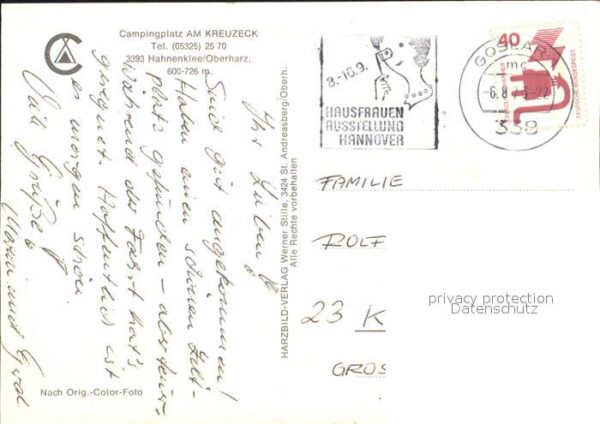 Campingplatz AM KREUZECK
Tel. (05325) 25 70
3393 Hahnenklee/Oberharz,
600-726 m.
Ihr Lieben
Sind gut angekommen!
Haben einen schönen Zelt-
platz gefunden – aber teuer.
Während der Fahrt hat's
geregnet. Hoffentlich ist
es morgen schön
Viele Grüße
und
Nach Orig.-Color-Foto
HARZBILD-VERLAG Werner Stille, 3424 St. Andreasberg/Oberh.
Alle Rechte vorbehalten
8.-16.9.
HAUSFRAUEN
AUSSTELLUNG
HANNOVER
GOSLAR
mc
-6.8.7
338
40
DEUTSCHE BUNDESPOST
FAMILIE
ROLF
23 K
GROS
privacy protection
Datenschutz